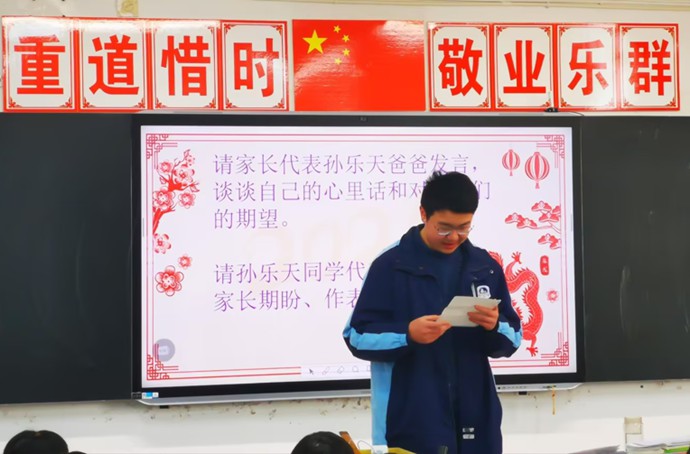 重道惜时 敬业乐群
请家长代表孙乐天爸爸发言，
谈谈自己的心里话和对 们
的期望。
请孙乐天同学代
家长期盼、作表